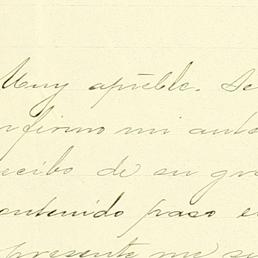 Muy apreble. Se
nfirmo mi ante
recibo de su gra
contenido paso e
presente me su